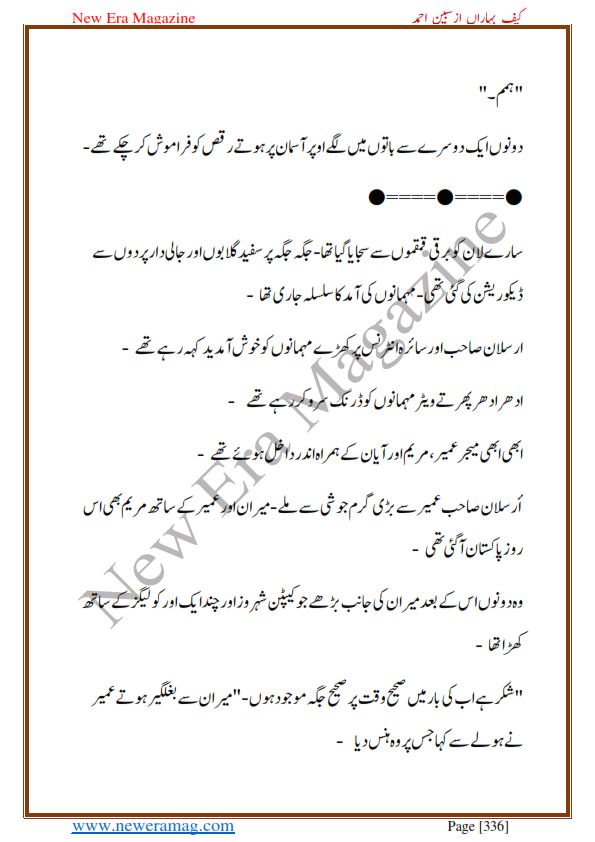 New Era Magazine
کیف بہاراں از سبین احمد
"ہمم۔"
دونوں ایک دوسرے سے باتوں میں لگے اوپر آسمان پر ہوتے رقص کو فراموش کر چکے تھے-
●====●====●
سارے لان کو برقی قمقموں سے سجایا گیا تھا- جگہ جگہ پر سفید گلابوں اور جالی دار پردوں سے
ڈیکوریشن کی گئی تھی- مہمانوں کی آمد کا سلسلہ جاری تھا -
ارسلان صاحب اور سائرہ انٹرنس پر کھڑے مہمانوں کو خوش آمدید کہہ رہے تھے -
ادھر ادھر پھرتے ویٹر مہمانوں کو ڈرنک سرو کر رہے تھے -
ابھی ابھی میجر عمیر، مریم اور آیان کے ہمراہ اندر داخل ہوئے تھے -
أرسلان صاحب عمیر سے بڑی گرم جوشی سے ملے- میران اور عمیر کے ساتھ مریم بھی اس
روز پاکستان آ گئی تھی -
وہ دونوں اس کے بعد میران کی جانب بڑھے جو کیپٹن شہروز اور چند ایک اور کولیگز کے ساتھ
کھڑا تھا -
"شکر ہے اب کی بار میں صحیح وقت پر صحیح جگہ موجود ہوں-" میران سے بغلگیر ہوتے عمیر
نے ہولے سے کہا جس پر وہ ہنس دیا -
New Era Magazine
www.neweramag.com
Page [336]